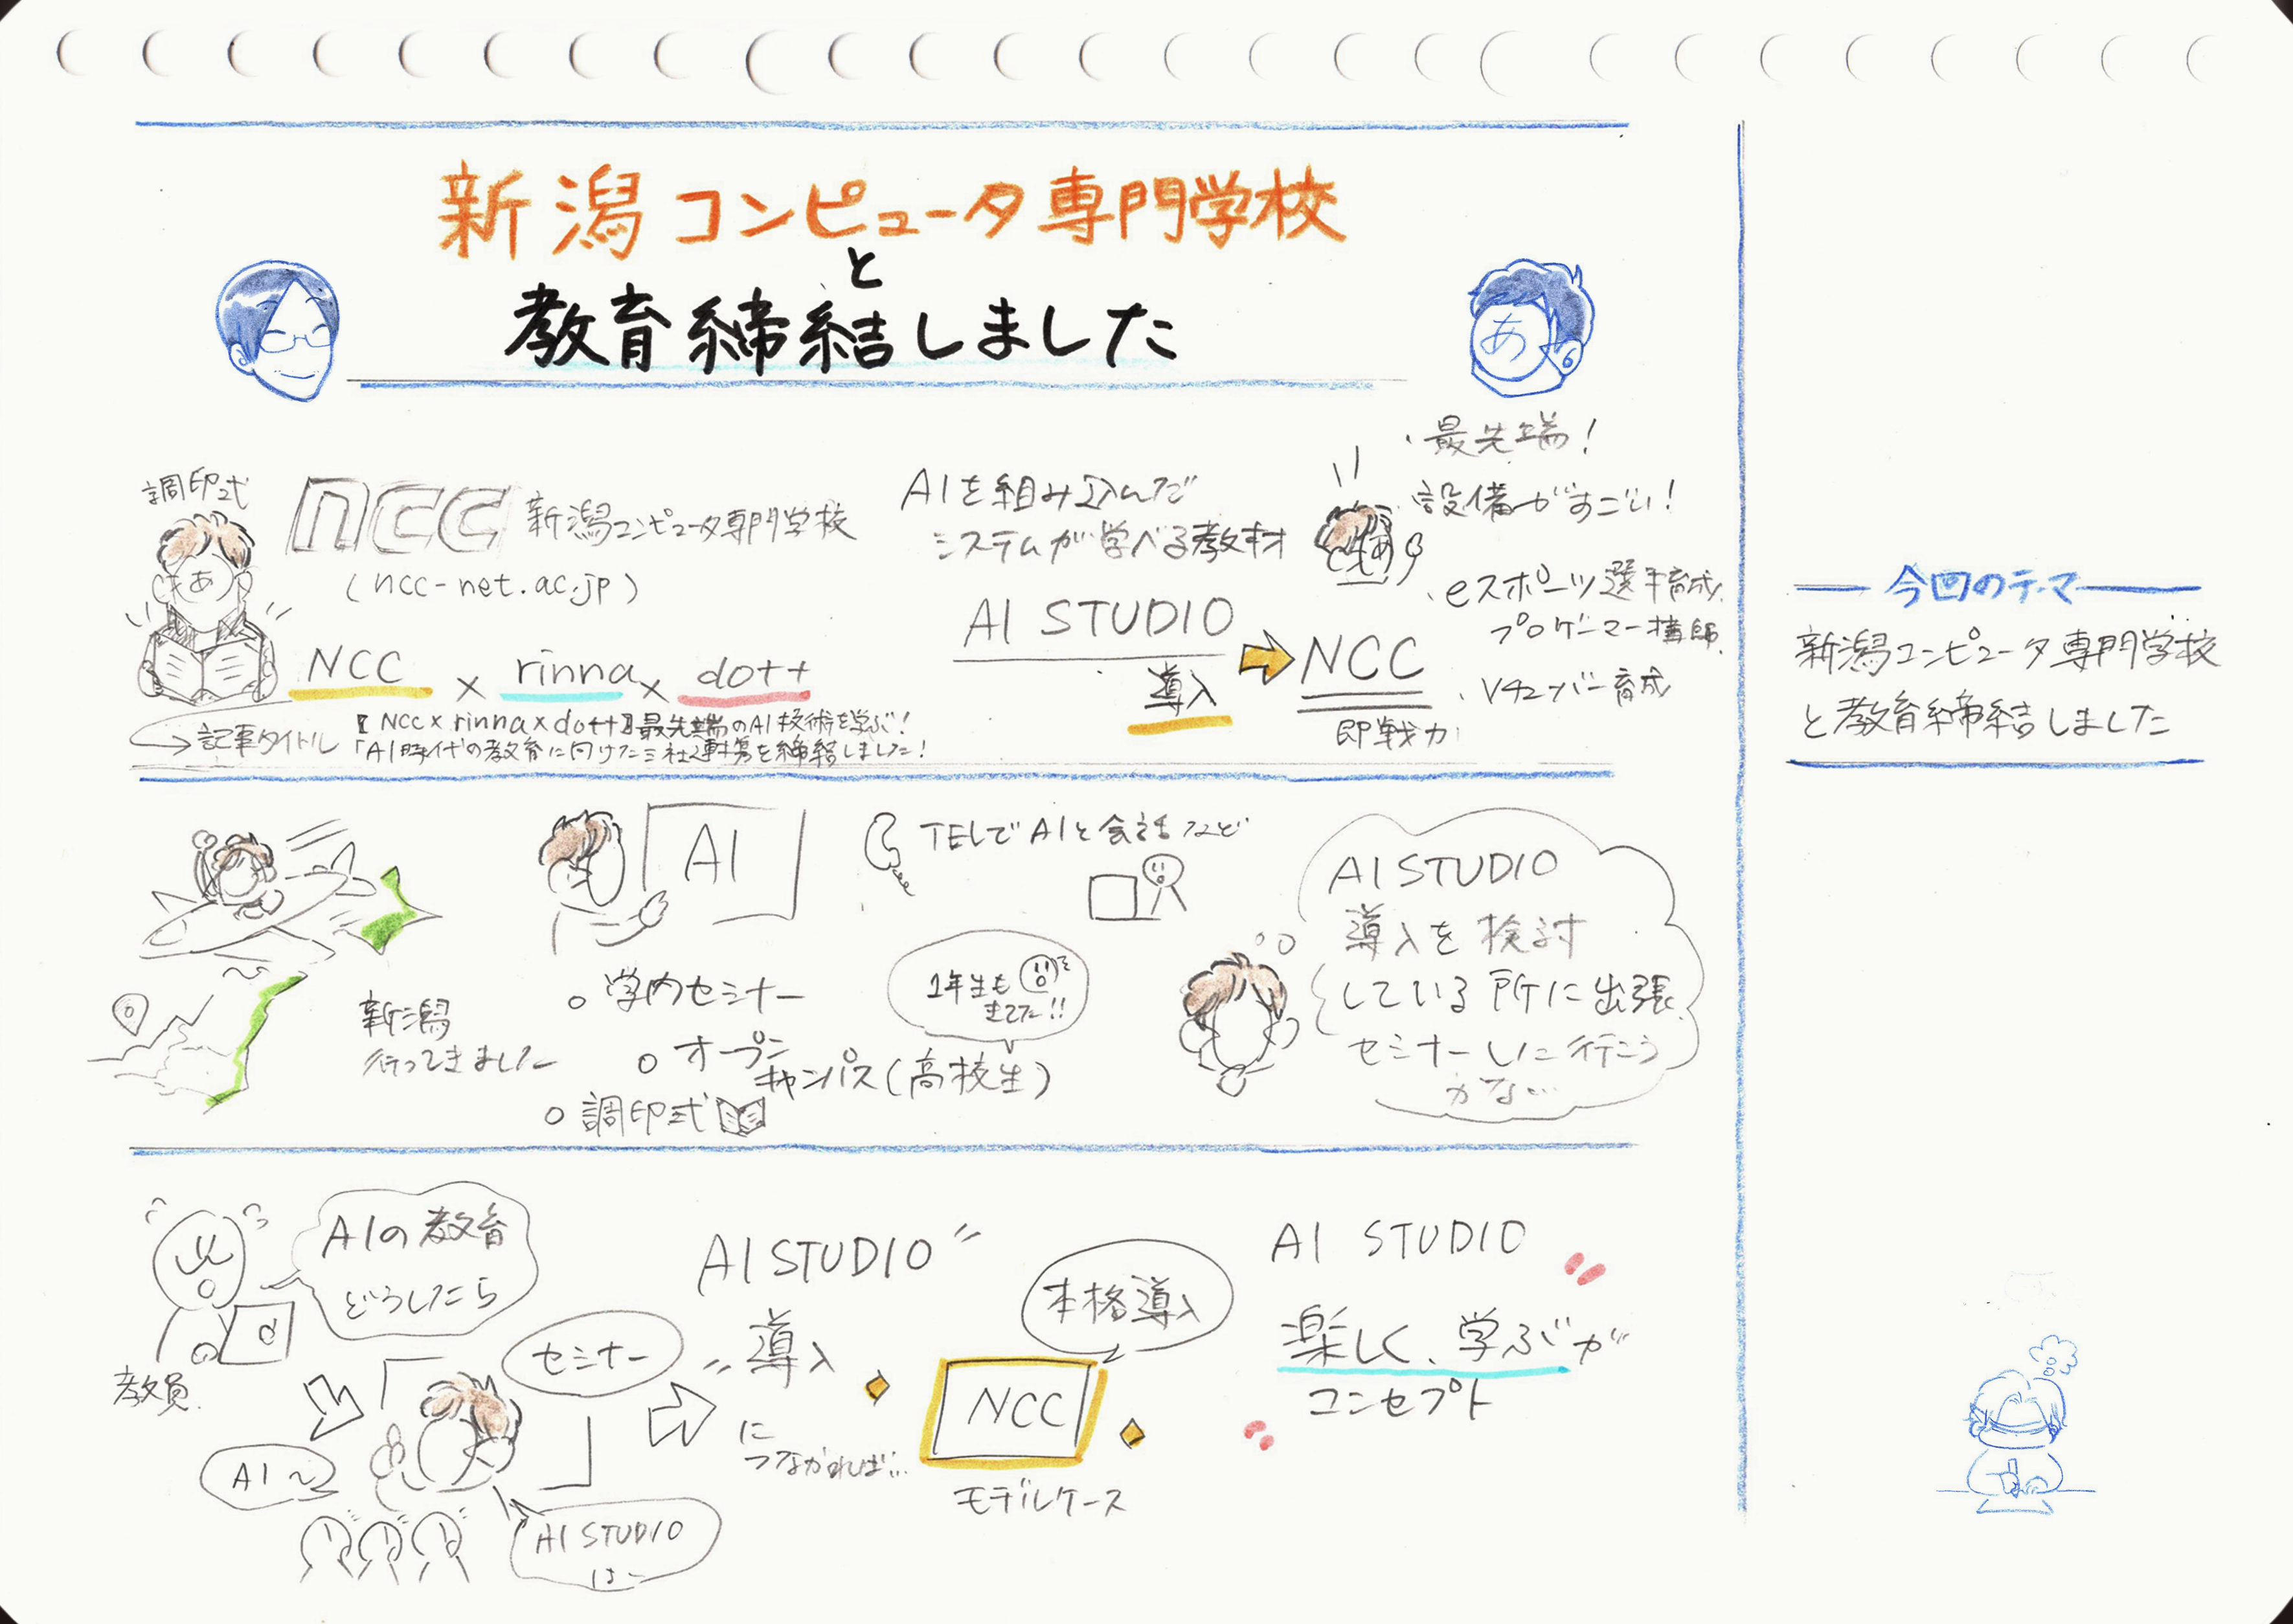 新潟コンピュータ専門学校
と
教育締結しました
あ
調印式
あ
ncc 新潟コンピュータ専門学校
(ncc-net.ac.jp)
NCC × rinna × dott
記事タイトル
【NCC×rinna×dott】最先端のAI技術を学ぶ!
「AI時代の教育に向けた三社連携を締結しました!
AIを組み込んだ
システムが学べる教材
AI STUDIO
導入
NCC
即戦力
あ
・最先端!
設備がすごい!
・eスポーツ選手育成
プロゲーマー講師
・Vチューバー育成
今回のテーマ
新潟コンピュータ専門学校
と教育締結しました
新潟
行ってきました
AI
TELでAIと会話など
○ 学内セミナー
○ オープン
キャンパス(高校生)
○ 調印式
1年生も
きてた!!
AI STUDIO
導入を検討
している所に出張
セミナーしに行こう
かな…
AIの教育
どうしたら
教員
AI〜
セミナー
AI STUDIO
は〜
AI STUDIO
導入
に
つながれば…
本格導入
NCC
モデルケース
AI STUDIO
楽しく、学ぶが
コンセプト